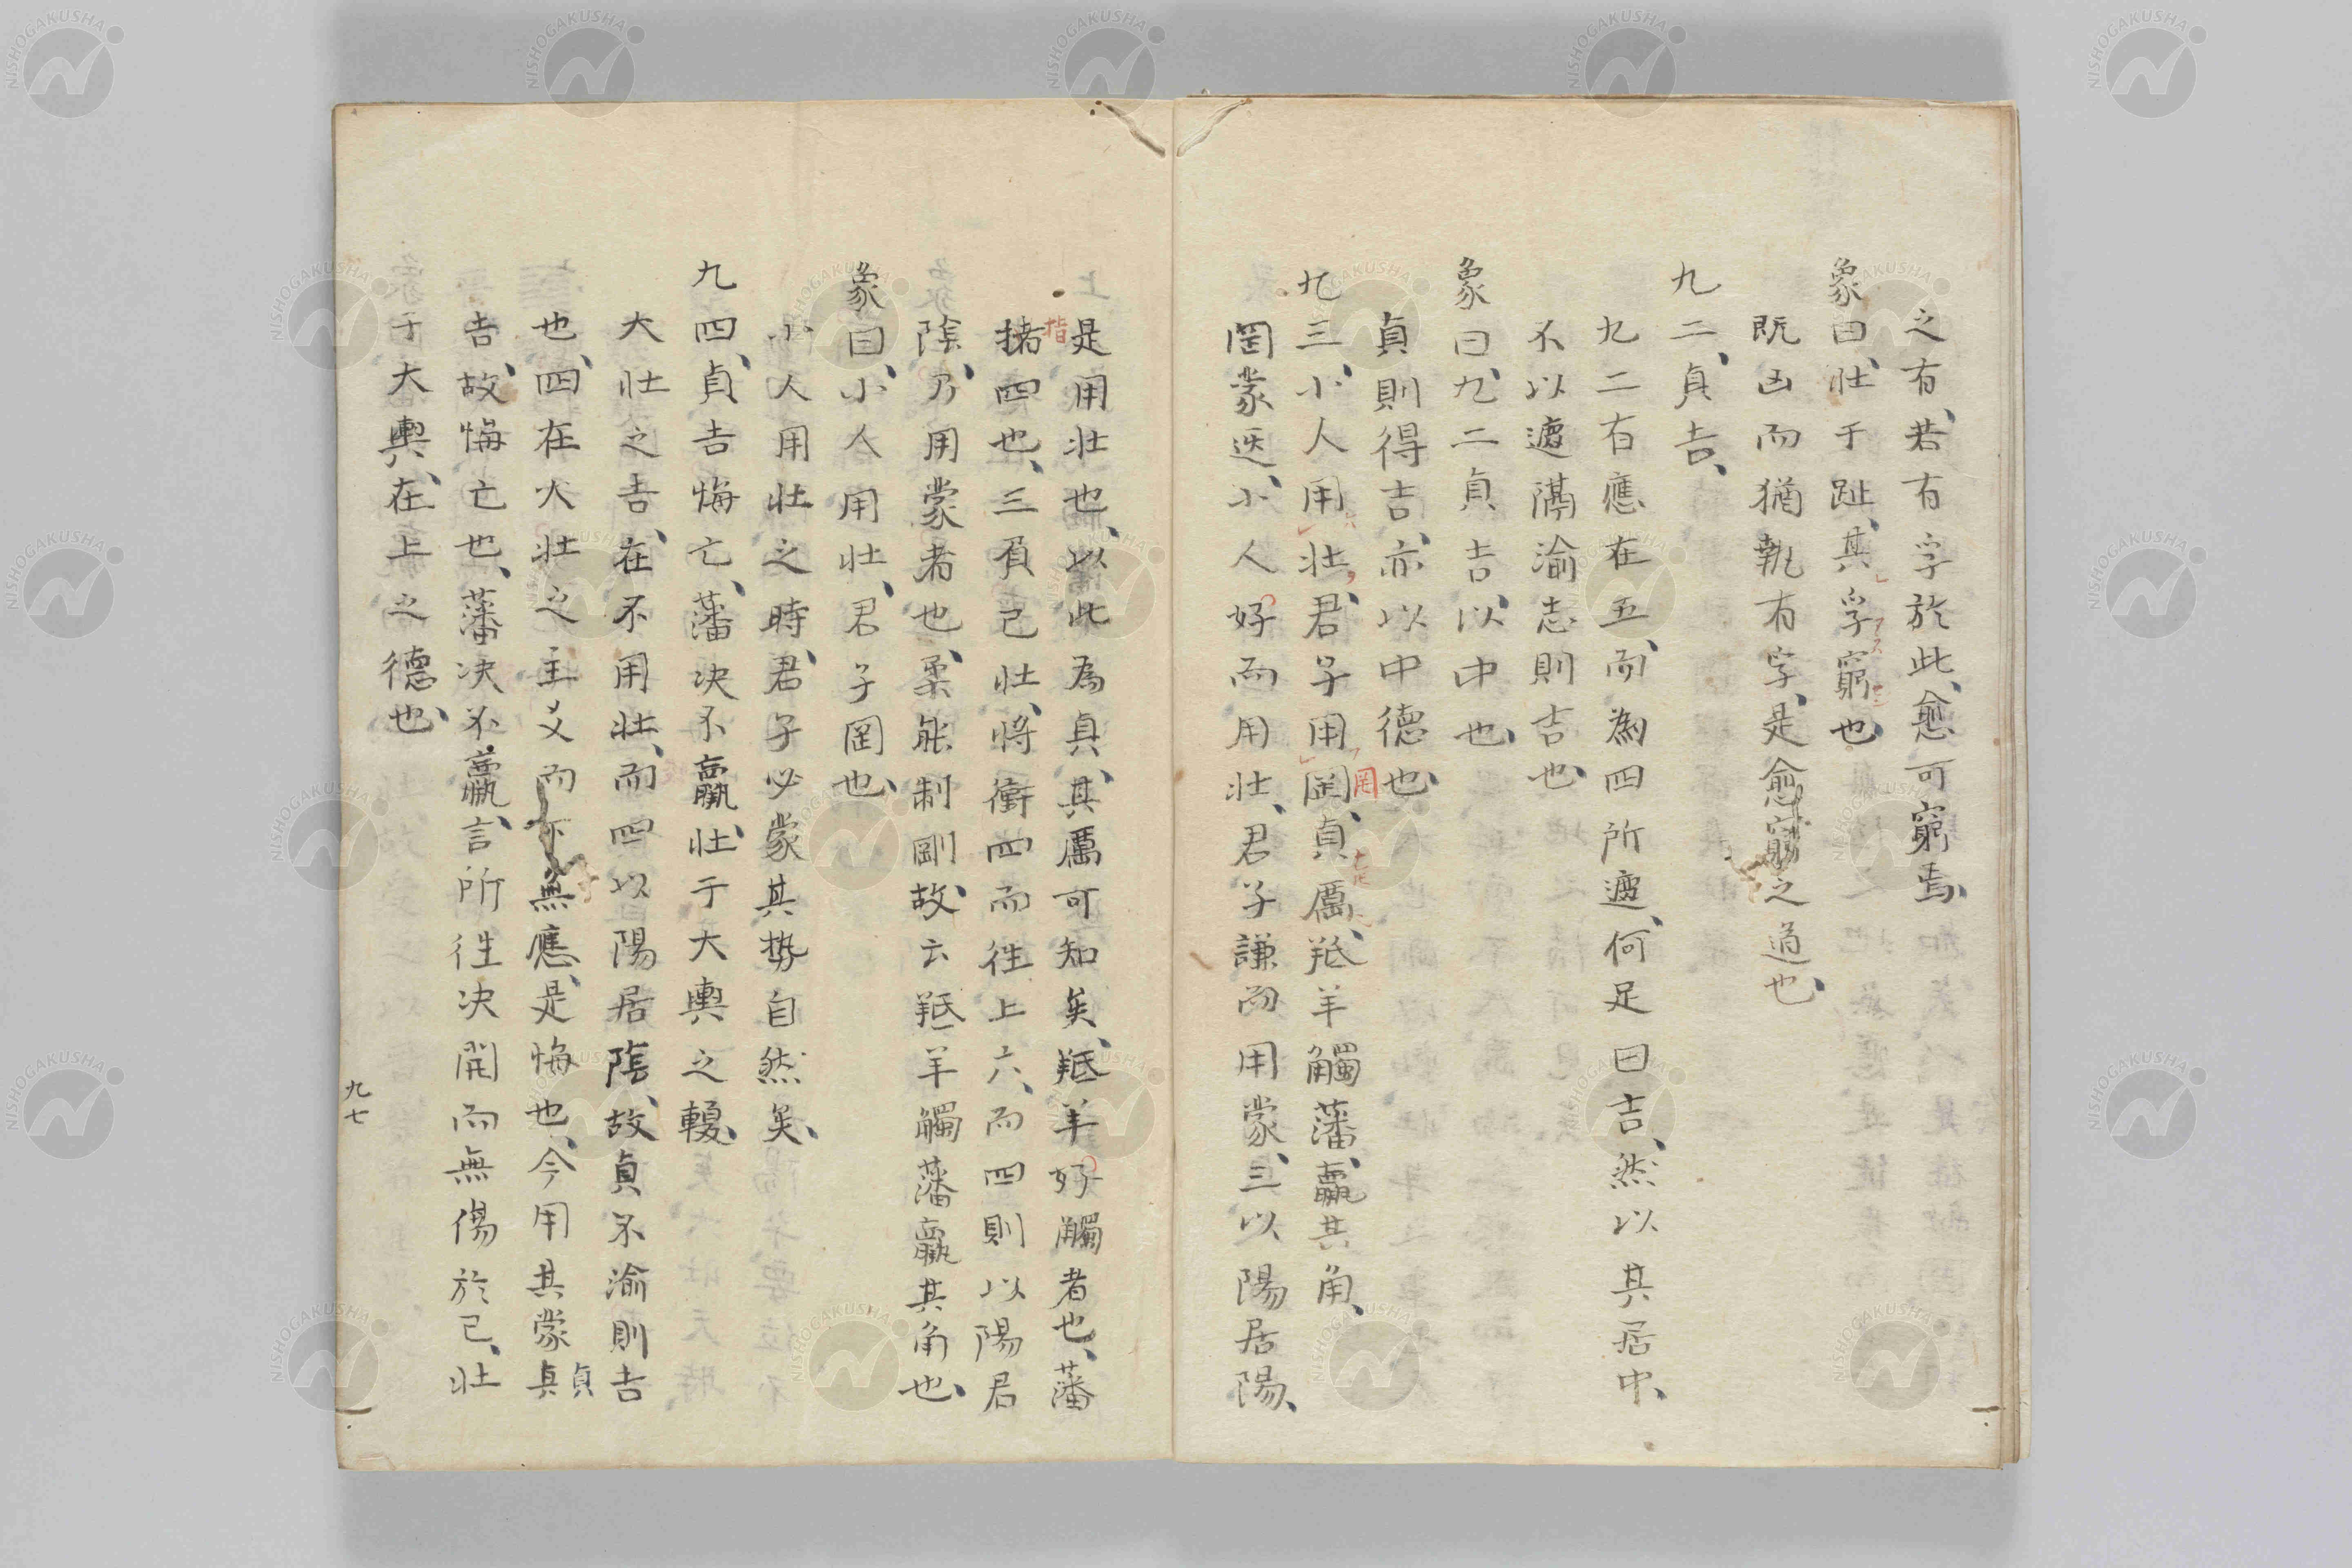 之有、若有孚於此、愈可窮焉、
象曰、壯于趾、其孚窮也、
既凶而猶執有孚、是愈窮之道也、
九二、貞吉、
九二有應在五、而為四所遮、何足曰吉、然以其居中、
不以遮隔渝志則吉也、
象曰、九二貞吉、以中也、
貞則得吉、亦以中德也、
九三、小人用壯、君子用罔、貞厲、羝羊觸藩、羸其角、
罔蒙 小人好而用壯、君子謙而用蒙、三以陽居陽、
是用壯也、以此為貞、其厲可知矣、羝羊好觸者也、藩
指四也、三負己壯、將衝四而往上六、而四則以陽居
陰、乃用蒙者也、柔能制剛、故云羝羊觸藩羸其角也、
象曰、小人用壯、君子罔也、
小人用壯之時、君子必蒙其勢自然矣、
九四、貞吉悔亡、藩決不羸、壯于大輿之輹、
大壯之吉、在不用壯、而四以陽居陰、故貞不渝則吉
也、四在大壯之主爻而下無應、是悔也、今用其蒙貞
貞
吉、故悔亡也、藩決不羸、言所往決開而無傷於己、壯
于大輿、在上之德也、
九七
NISHOGAKUSHA